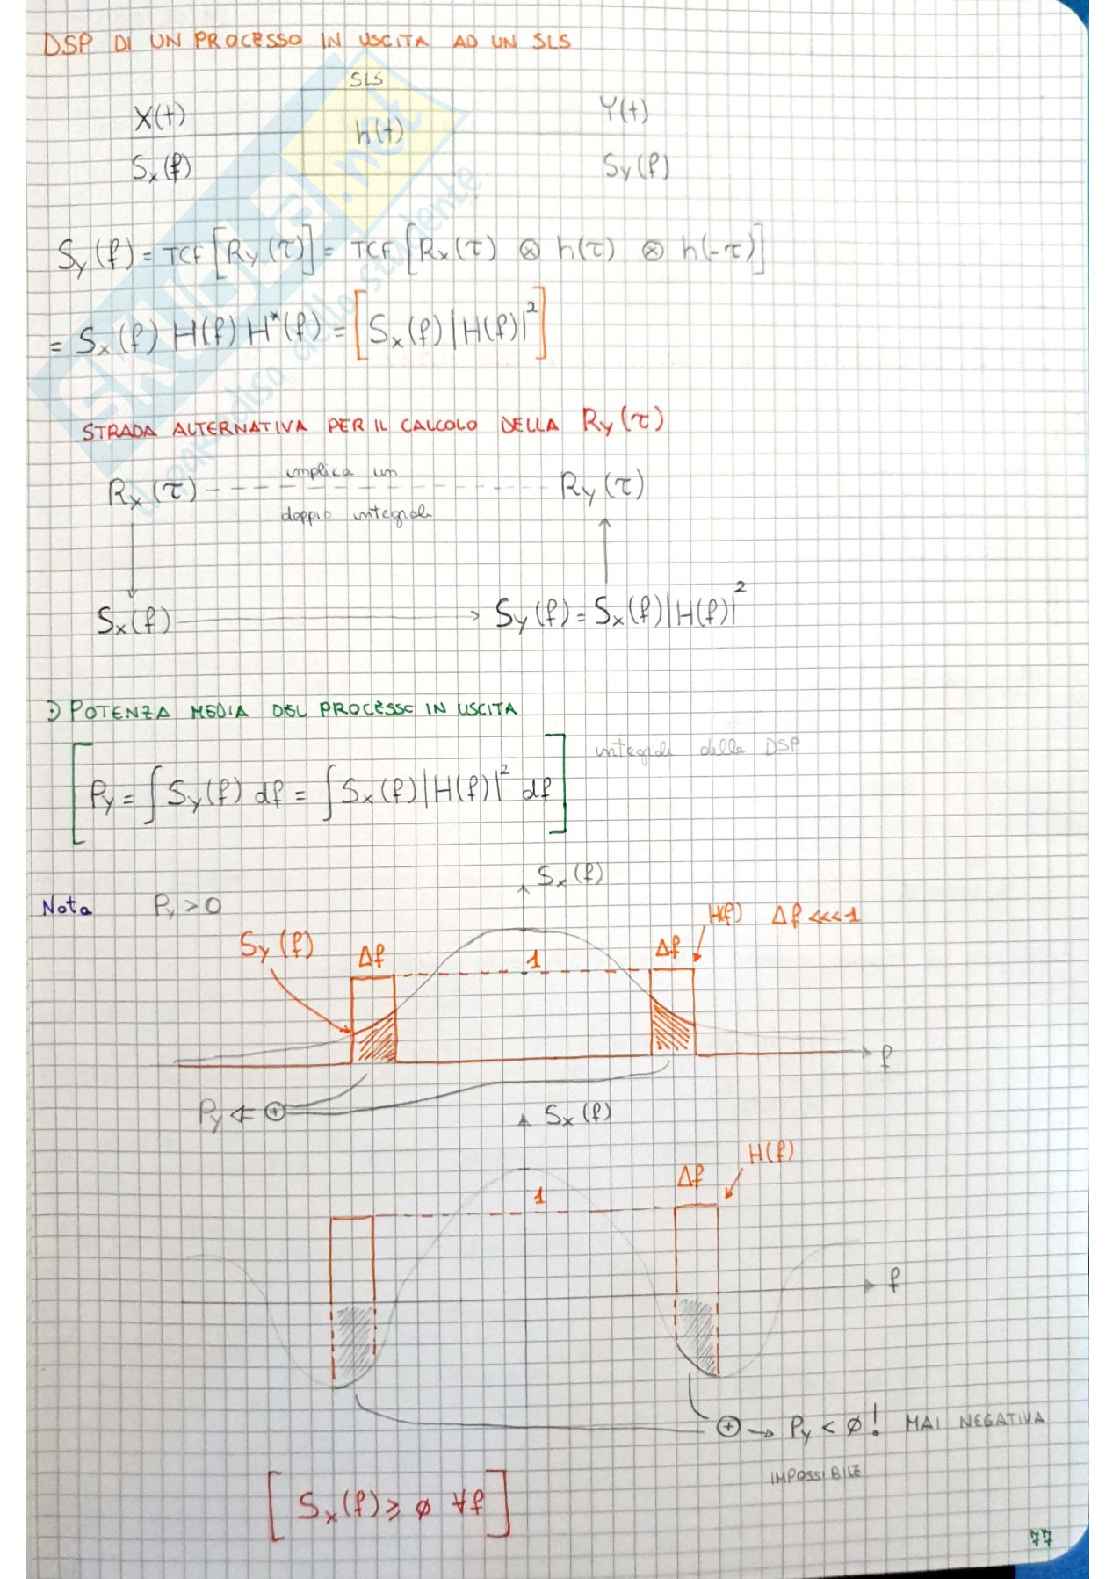 DSP DI UN PROCESSO IN USCITA AD UN SLS
SLS
X(t) h(t) Y(t)
Sx(f) Sy(f)
Sy(f) = TCF[Ry(τ)] = TCF[Rx(τ) ⊗ h(τ) ⊗ h(-τ)]
= Sx(f) H(f) H*(f) = [Sx(f)|H(f)|²]
STRADA ALTERNATIVA PER IL CALCOLO DELLA Ry(τ)
Rx(τ) implica un Ry(τ)
doppio integrale
Sx(f) → Sy(f) = Sx(f)|H(f)|²
POTENZA MEDIA DEL PROCESSO IN USCITA
[Py = ∫ Sy(f) df = ∫ Sx(f)|H(f)|² df] integrale della DSP
Sx(f)
Nota Py > 0
H(f) Δf <<<1
Sy(f) Δf 1 Δf
f
Py ← ⊕
Sx(f)
H(f)
Δf
1
f
⊕ → Py < ø! MAI NEGATIVA
IMPOSSIBILE
[Sx(f) ≥ ø ∀f]
77
SKUOLA.net